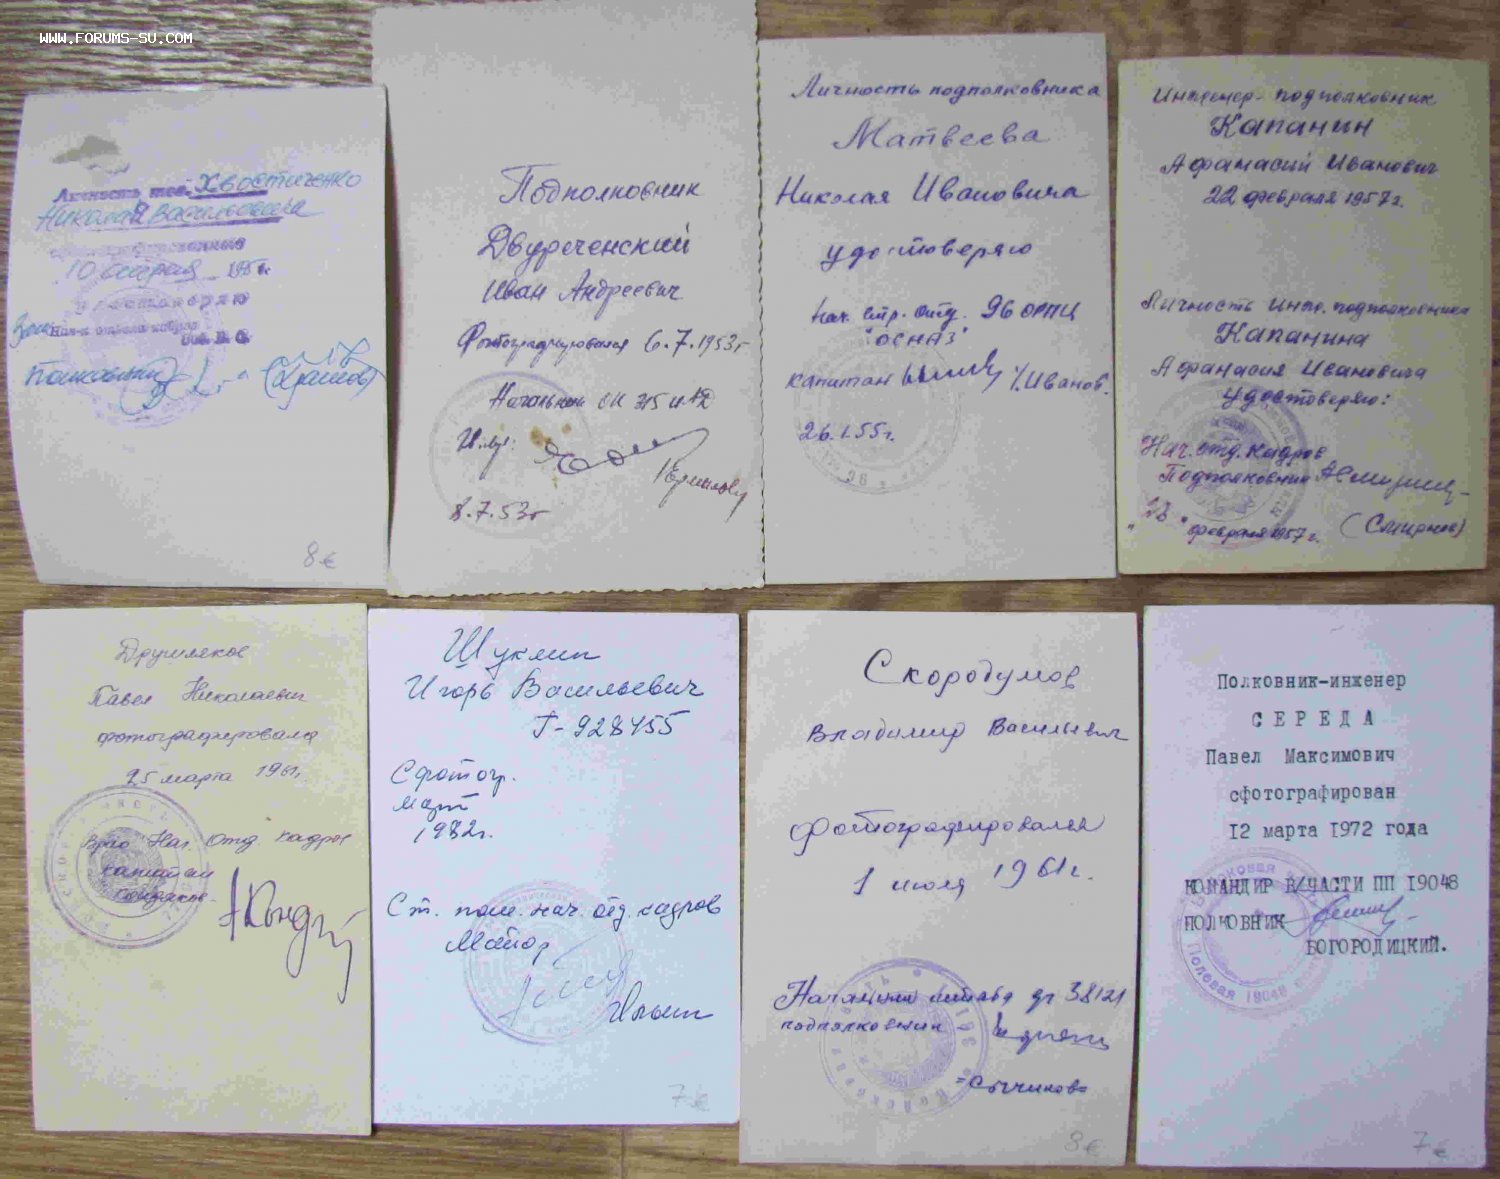 WWW.FORUMS-SU.COM
Личность тов. Хвостиченко
Николая Васильевича
195 г.
удостоверяю
Нач-к отдела кадров
8 €
Подполковник
Двуреченский
Иван Андреевич
Фотографировался 6.7.1953г
Начальник
8.7.53г
Личность подполковника
Матвеева
Николая Ивановича
удостоверяю
Нач. стр. отд. 96 ОРПЦ
"ОСНАЗ"
капитан /Иванов.
26.1.55г.
Инженер-подполковник
Капанин
Афанасий Иванович
22 февраля 1957г.
Личность Инж. подполковника
Капанина
Афанасия Ивановича
Удостоверяю:
Нач. отд. кадров
Подполковник
февраля 1957 г. (Смирнов)
Павел Николаевич
фотографировался
25 марта 1961г.
Врио Нач. Отд. кадров
капитан
Шуклин
Игорь Васильевич
Г-928455
Сфотогр.
март
Ст. пом. нач. отд. кадров
Майор
7 €
Скородумов
Владимир Васильевич
фотографировался
1 июля 1961г.
Начальник штаба 38121
подполковник
8 €
Полковник-инженер
СЕРЕДА
Павел Максимович
сфотографирован
12 марта 1972 года
КОМАНДИР В/ЧАСТИ ПП 19048
ПОЛКОВНИК
БОГОРОДИЦКИЙ.
7 €